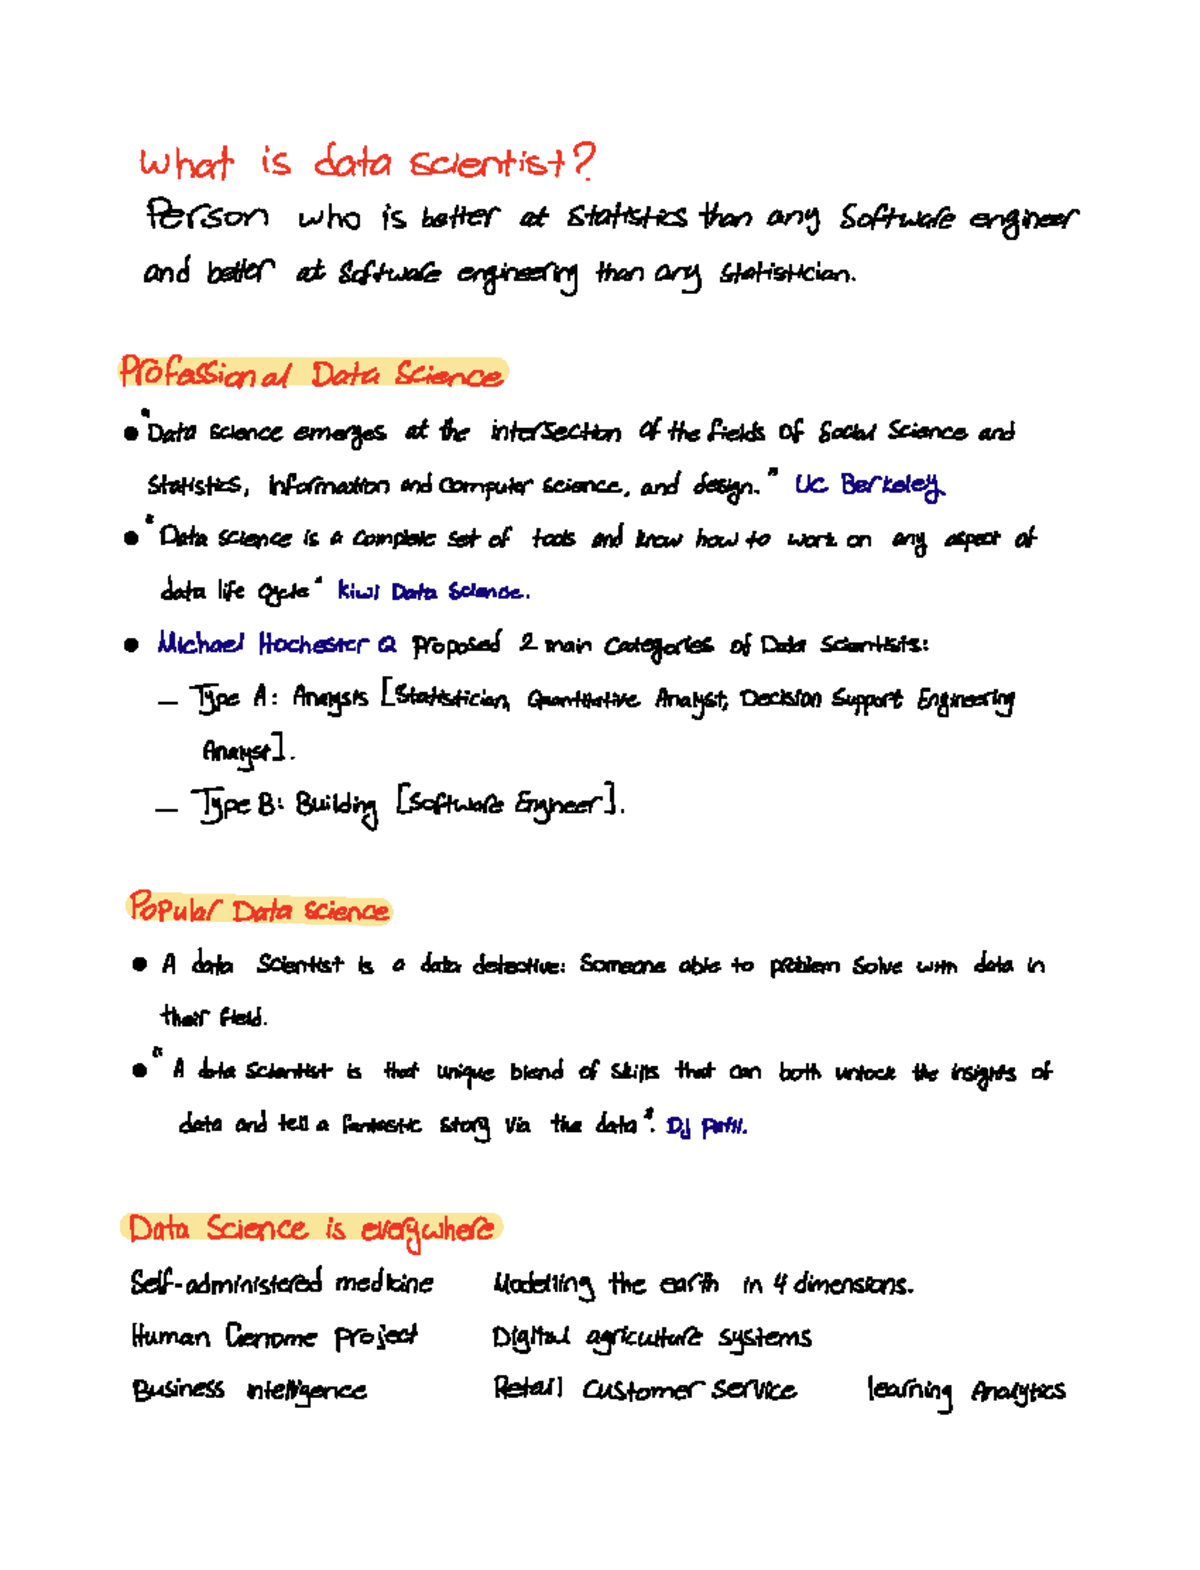 What is data scientist?
Person who is better at statistics than any software engineer
and better at software engineering than any statistician.
Professional Data Science
• "Data science emerges at the intersection of the fields of social science and
statistics, information and computer science, and design." UC Berkeley
• "Data science is a complete set of tools and know how to work on any aspect of
data life cycle" kiwi Data Science.
• Michael Hochester Q proposed 2 main categories of Data Scientists:
– Type A: Analysis [Statistician, Quantitative Analyst, Decision Support Engineering
Analyst].
– Type B: Building [Software Engineer].
Popular Data science
• A data scientist is a data detective: Someone able to problem solve with data in
their field.
• "A data scientist is that unique blend of skills that can both unlock the insights of
data and tell a fantastic story via the data". DJ Patil.
Data Science is everywhere
Self-administered medicine Modelling the earth in 4 dimensions.
Human Genome project Digital agriculture systems
Business intelligence Retail customer service learning Analytics